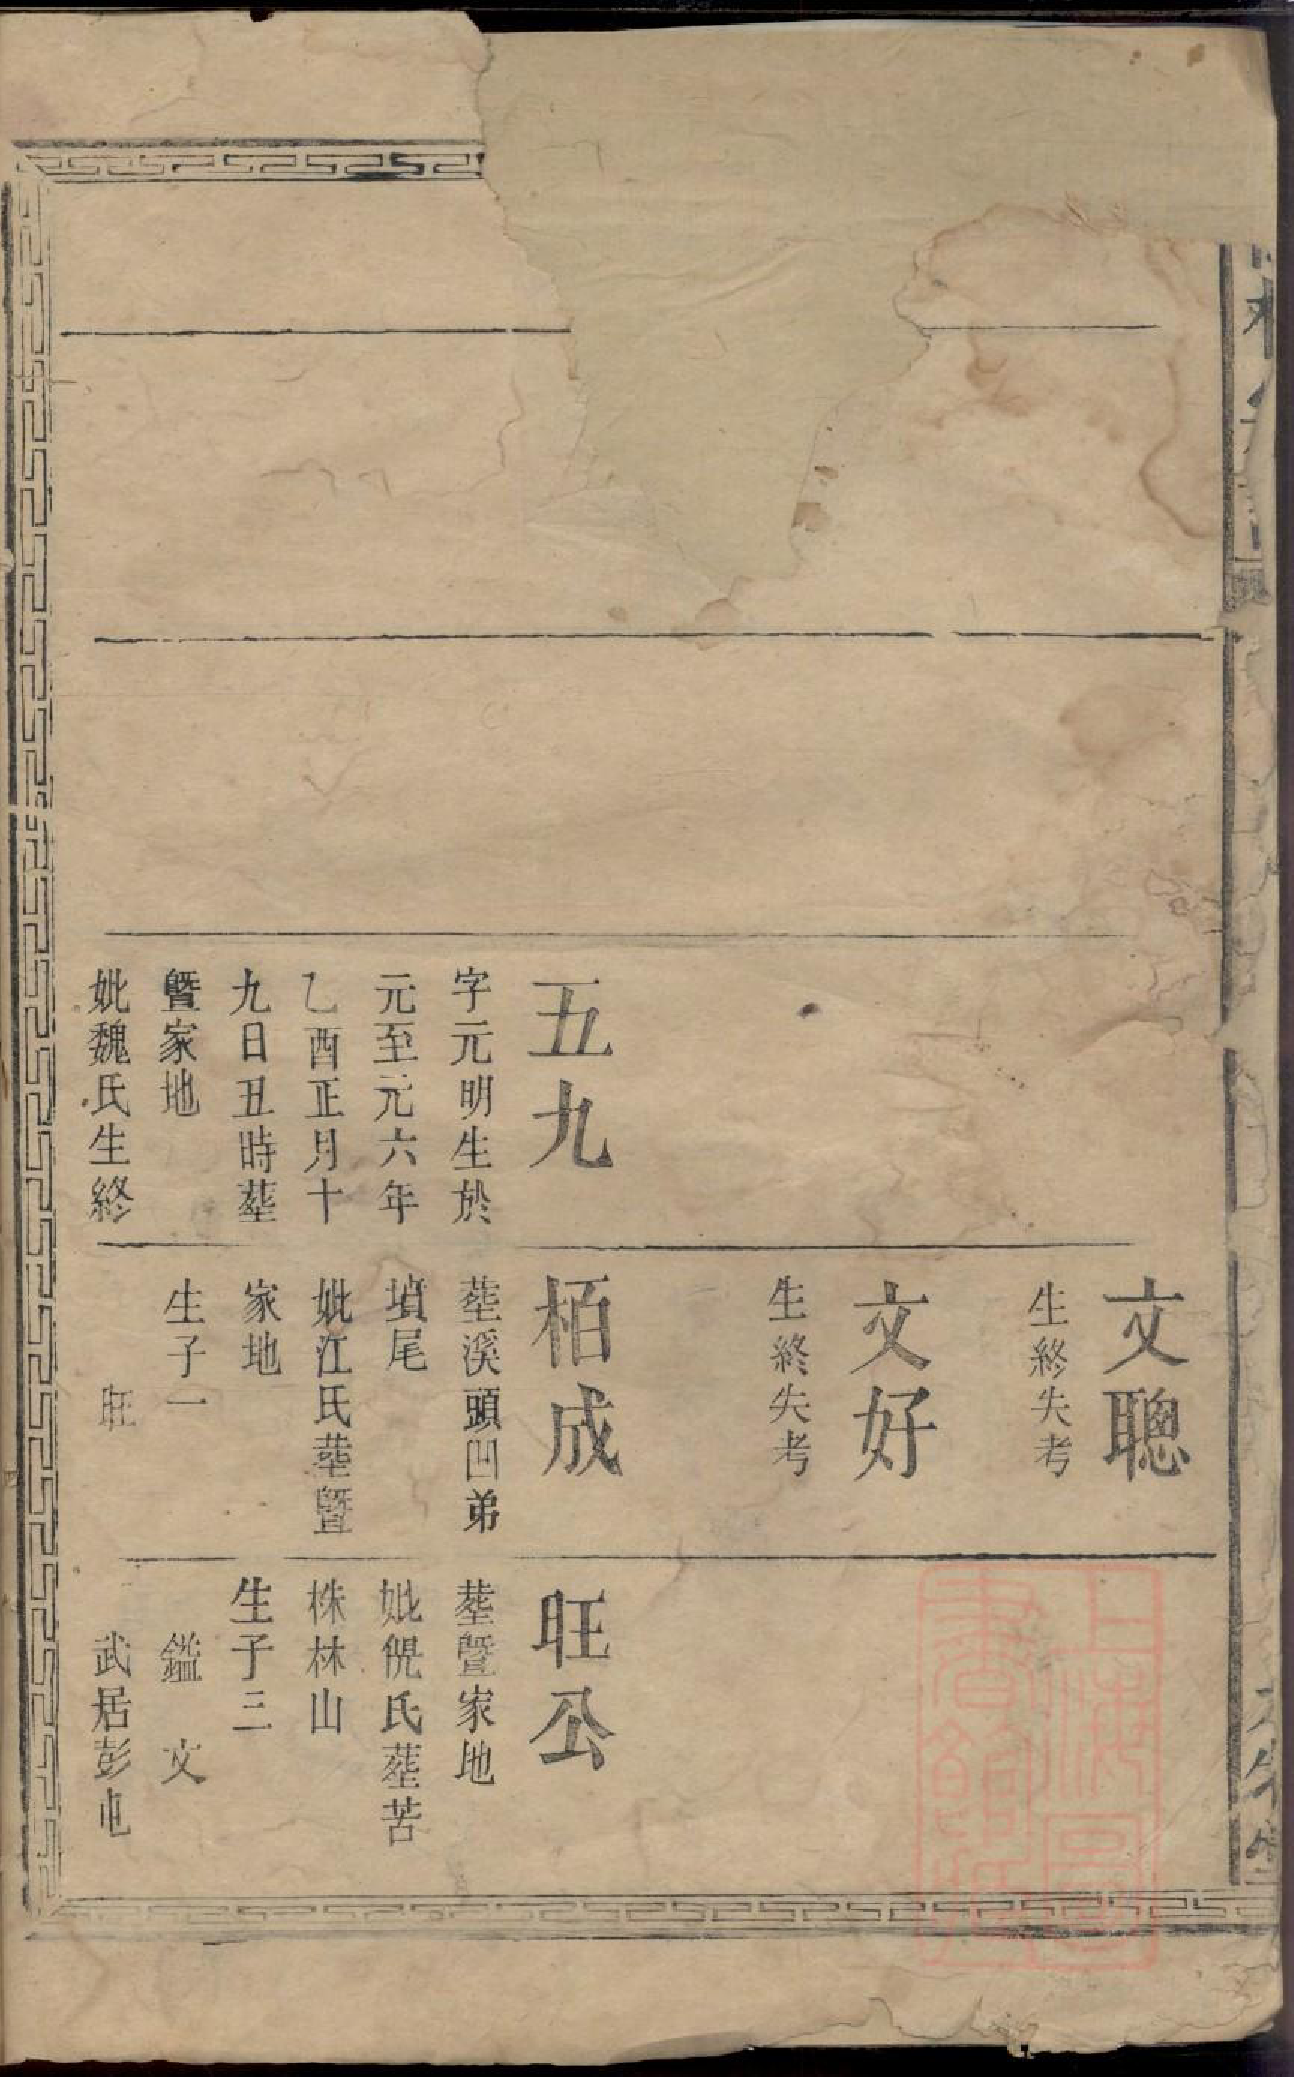 五九
字元明生於
元至元六年
乙酉正月十
九日丑時塟
曁家地
妣魏氏生終
文聰
生終失考
文好
生終失考
栢成
塟溪頭凹弟
墳尾
妣江氏塟曁
家地
生子一
旺
旺公
塟曁家地
妣倪氏塟苦
株林山
生子三
鎰 文
武居彭屯
上海圖
書館藏